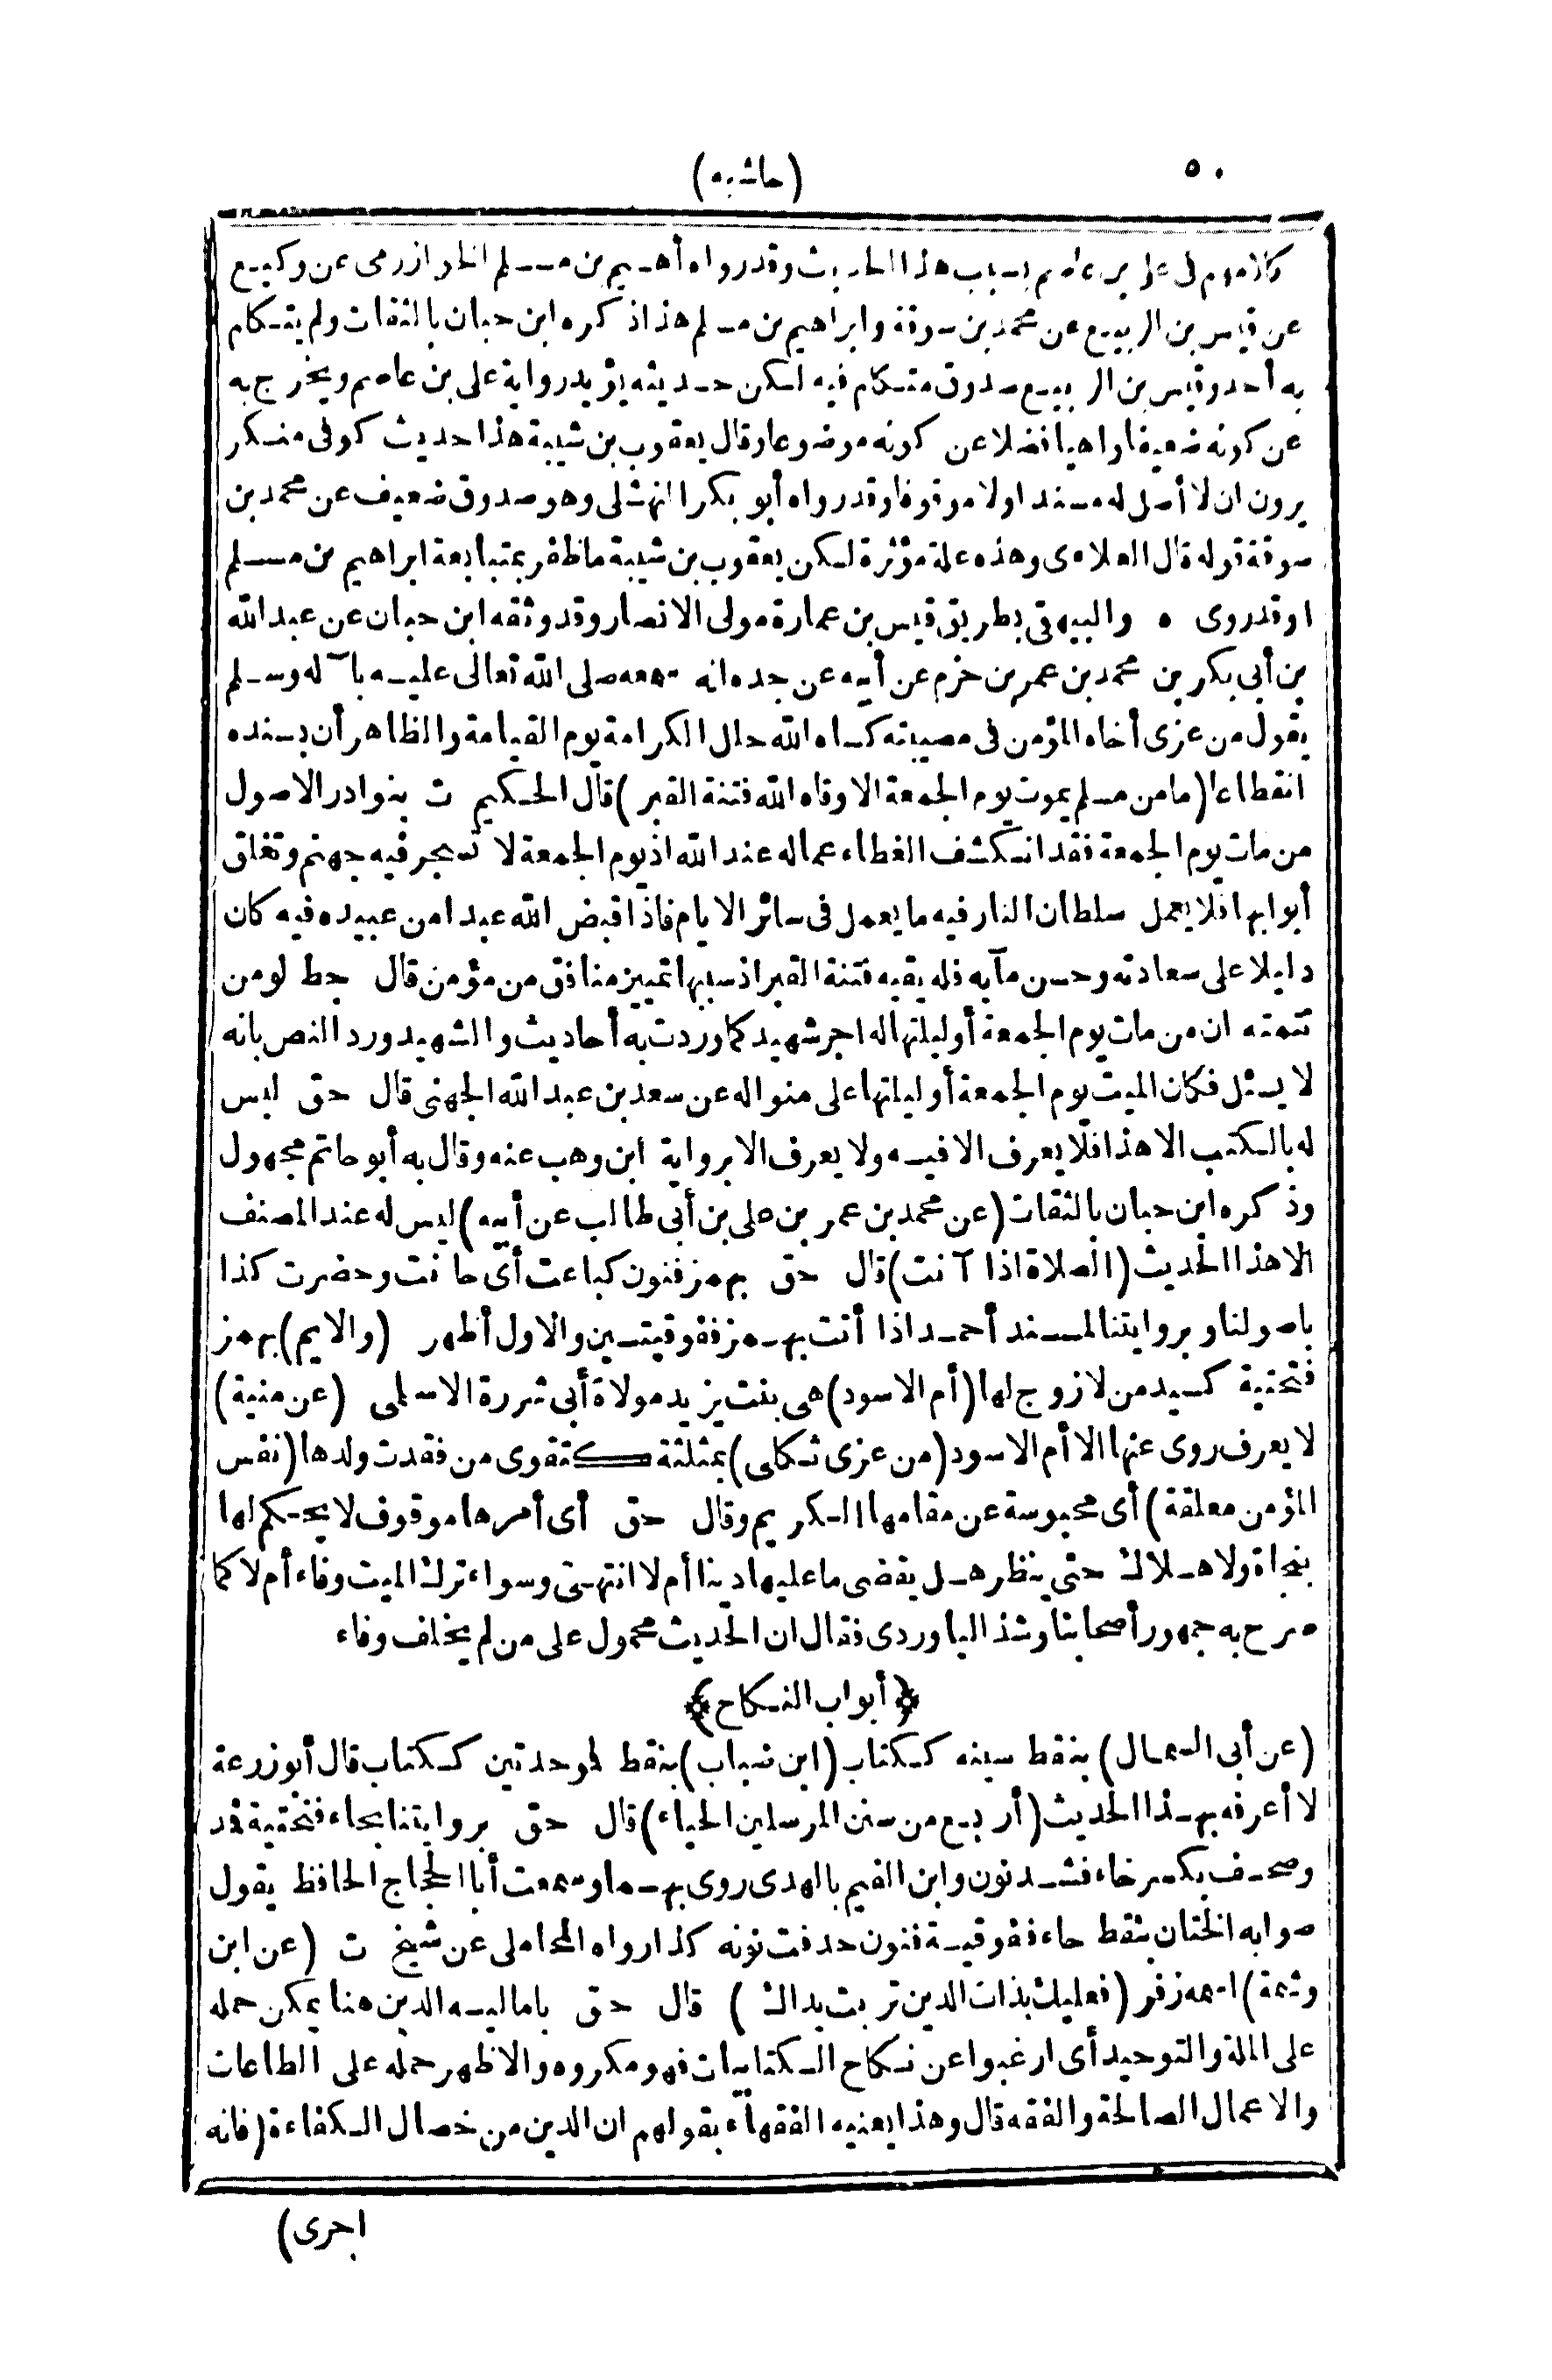 ٥٠
(حاشيه)
كلامهم فى على بن عاصم بسبب هذا الحديث وقد رواه ابراهيم بن مسلم الخوارزمى عن وكيع
عن قيس بن الربيع عن محمد بن سوقة وابراهيم بن مسلم هذا ذكره ابن حبان بالثقات ولم يتكلم
به أحد وقيس بن الربيع صدوق متكلم فيه لكن حديثه يؤيد رواية على بن عاصم ويخرج به
عن كونه ضعيفا واهيا فضلا عن كونه موضوعا وقال يعقوب بن شيبة هذا حديث كوفى منكر
يرون ان لا أصل له مسندا ولا موقوفا وقد رواه أبو بكر النهشلى وهو صدوق ضعيف عن محمد بن
سوقة قوله قال العلاءى وهذه علة مؤثرة لكن يعقوب بن شيبة ما ظفر بمتابعة ابراهيم بن مسلم
او قد روى ه والبيهقى بطريق قيس بن عمارة مولى الانصار وقد وثقه ابن حبان عن عبد الله
بن أبى بكر بن محمد بن عمر بن حزم عن أبيه عن جده انه سمعه صلى الله تعالى عليه بآله وسلم
يقول من عزى أخاه المؤمن فى مصيبته كساه الله حلل الكرامة يوم القيامة والظاهر أن بسنده
انقطاعا (ما من مسلم يموت يوم الجمعة الا وقاه الله فتنة القبر) قال الحكيم ت بنوادر الاصول
من مات يوم الجمعة فقد انكشف الغطاء عما له عند الله اذ يوم الجمعة لا تسجر فيه جهنم وتغلق
أبوابها فلا يعمل سلطان النار فيه ما يعمل فى سائر الايام فاذا قبض الله عبدا من عبيده فيه كان
دليلا على سعادته وحسن مآبه فله يقيه فتنة القبر اذ سببها تمييز منافق من مؤمن قال جط لو من
تتمته ان من مات يوم الجمعة أو ليلتها له اجر شهيد كما وردت به أحاديث والشهيد ورد النص بانه
لا يسئل فكان الميت يوم الجمعة أو ليلتها على منواله عن سعد بن عبد الله الجهنى قال حق ليس
له بالكتب الا هذا فلا يعرف الا فيه ولا يعرف الا برواية ابن وهب عنه وقال به أبو حاتم مجهول
وذكره ابن حبان بالثقات (عن محمد بن عمر بن على بن أبى طالب عن أبيه) ليس له عند المصنف
الا هذا الحديث (الصلاة اذا آنت) قال حق بهمز فنون كباعت أى حانت وحضرت كذا
باصولنا وبروايتنا لمسند أحمد اذا أتت بهمز ففوقيتين والاول أظهر (والايم) بهمز
فتحتية كسيد من لا زوج لها (أم الاسود) هى بنت يزيد مولاة أبى بررة الاسلمى (عن منية)
لا يعرف روى عنها الا أم الاسود (من عزى ثكلى) بمثلثة كتقوى من فقدت ولدها (نفس
المؤمن معلقة) أى محبوسة عن مقامها الكريم وقال حق أى أمرها موقوف لا يحكم لها
بنجاة ولا هلاك حتى ينظر هل يقضى ما عليها دينا أم لا انتهى وسواء ترك الميت وفاء أم لا كما
صرح به جمهور أصحابنا وشذ الباوردى فقال ان الحديث محمول على من لم يخلف وفاء
﴿أبواب النكاح﴾
(عن أبى الشمال) بنقط سينه ككتاب (ابن ضباب) بنقط لموحدتين ككتاب قال أبو زرعة
لا أعرفه بهذا الحديث (أربع من سنن المرسلين الحياء) قال حق بروايتنا بحاء فتحتية فمد
وصحف بكسر خاء فشد نون وابن القيم بالهدى روى بهما وسمعت أبا الحجاج الحافظ يقول
صوابه الختان بنقط خاء ففوقية فنون حذفت نونه كذا رواه المحاملى عن شيخ ت (عن ابن
وثيمة) اسمه زفر (فعليك بذات الدين تربت يداك) قال حق باماليه الدين هنا يمكن حمله
على الملة والتوحيد أى ارغبوا عن نكاح الكتابيات فهو مكروه والاظهر حمله على الطاعات
والاعمال الصالحة والفقه قال وهذا يعنيه الفقهاء بقولهم ان الدين من خصال الكفاءة (فانه
احرى)